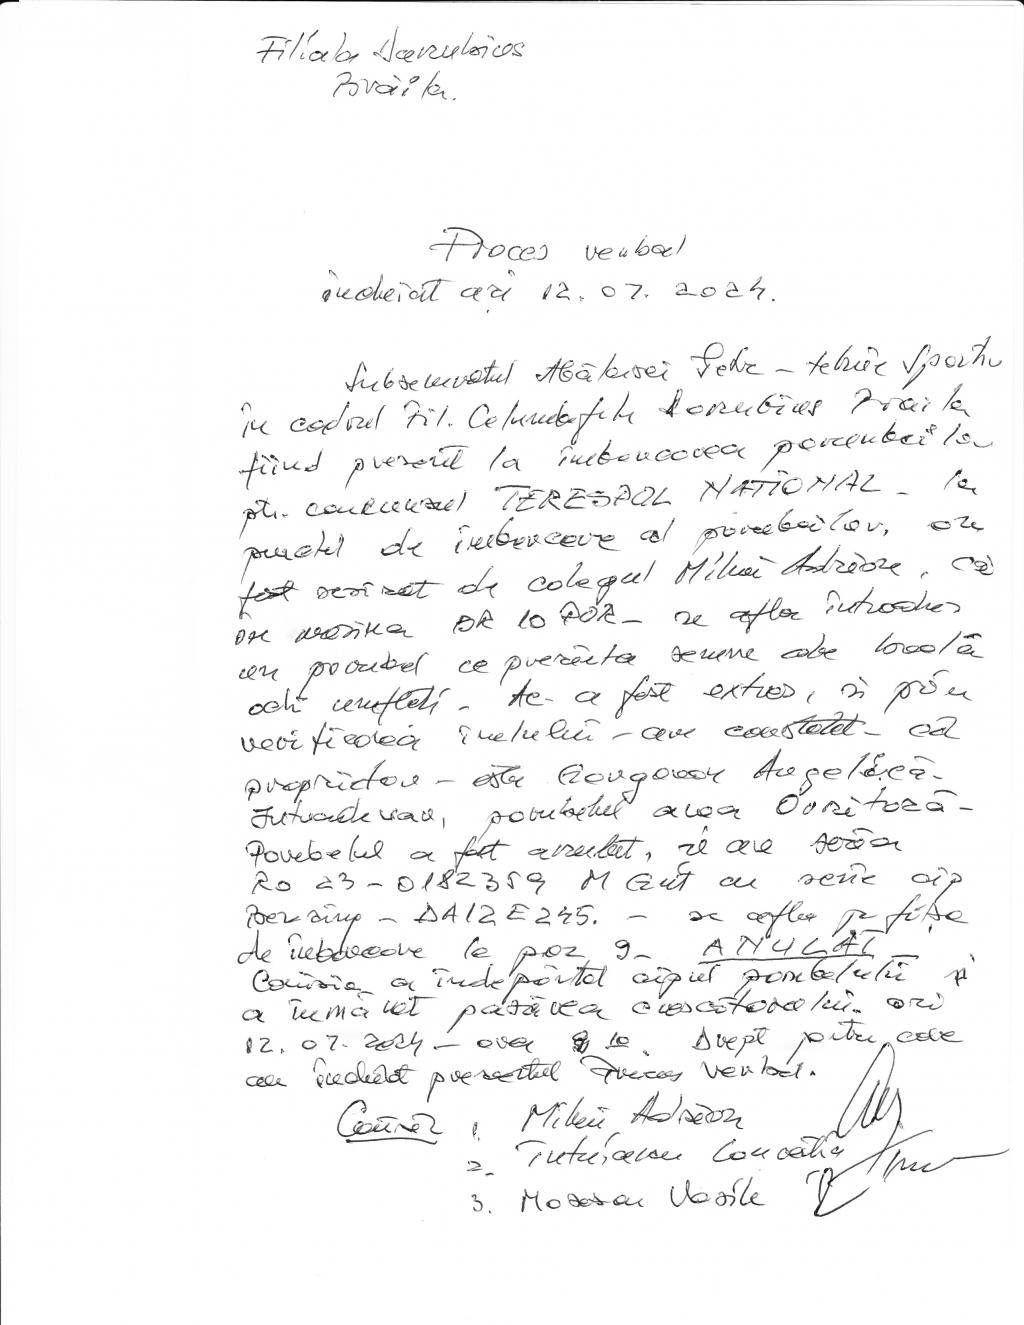 Filiala Danubius
Brăila.
Proces verbal
încheiat azi 12.07.2024.
Subsemnatul Petre – tehnic Sportiv
în cadrul Fil. Columbofile Danubius Brăila
fiind prezent la îmbarcarea porumbeilor
ptr. concursul TERESPOL NATIONAL – la
punctul de îmbarcare al porumbeilor, am
fost sesizat de colegul Mihai Adrian, că
în mașina BR 10 POR – se afla introdus
un porumbel ce prezenta semne de boală
ochi umflați. Ac. a fost extras, și prin
verificarea inelului – am constatat – că
proprietar – este Angelică –
porumbelul avea Ornitoză –
Porumbelul a fost anulat, el are seria
RO 23 – 0182359 M cu serie cip
Benzing – DA12E245. – se afla pe fișa
de îmbarcare la poz 9 – ANULAT
Comisia a îndepărtat cipul porumbelului și
a înmânat pasărea crescătorului. azi
12.07.2024 – ora 10. Drept pentru care
am încheiat prezentul Proces verbal.
1. Mihai Adrian
2.
3. Vasile